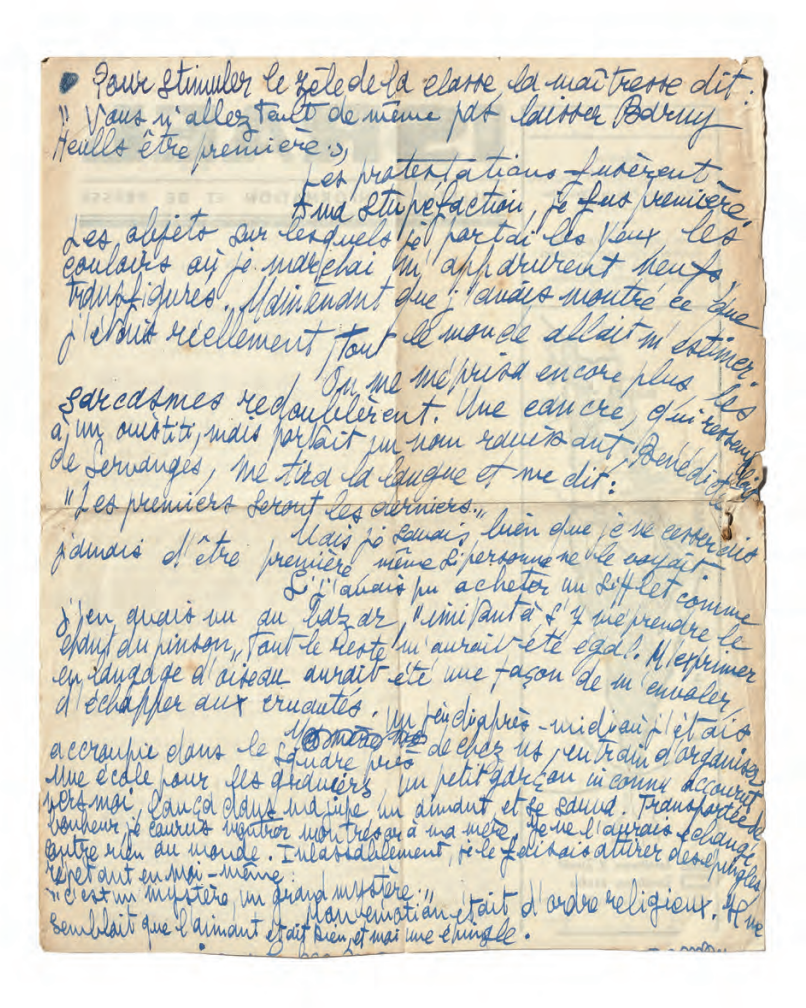 Pour stimuler le zèle de la classe, la maîtresse dit :
"Vous n'allez tout de même pas laisser Barny
être première."
Les protestations fusèrent
A ma stupéfaction, je fus première.
Les objets sur lesquels je portai les yeux, les
couloirs où je marchai m'apparurent neufs,
transfigurés. Maintenant que j'avais montré ce que
j'étais réellement, tout le monde allait m'estimer.
On me méprisa encore plus, les
sarcasmes redoublèrent. Une cancre, qui ressemblait
à un ouistiti, mais portait un nom ravissant, Bénédicte
de Servanges, me tira la langue et me dit :
"Les premiers seront les derniers."
Mais je savais bien que je ne cesserais
jamais d'être première même si personne ne le voyait.
Si j'avais pu acheter un sifflet comme
j'en avais vu au bazar, "imitant à s'y méprendre le
chant du pinson", tout le reste m'aurait été égal. M'exprimer
en langage d'oiseau aurait été une façon de m'envoler,
d'échapper aux cruautés.
Un jeudi après-midi où j'étais
accroupie dans le square près de chez ns, en train d'organiser
une école pour les graviers, un petit garçon inconnu accourut
vers moi, lança dans ma jupe un aimant et se sauva. Transportée de
bonheur, je courus montrer mon trésor à ma mère. Je ne l'aurais échangé
contre rien au monde. Inlassablement, je le faisais attirer des épingles,
répétant en moi-même :
"C'est un mystère, un grand mystère."
Mon émotion était d'ordre religieux. Il me
semblait que l'aimant était Dieu, et moi une épingle.